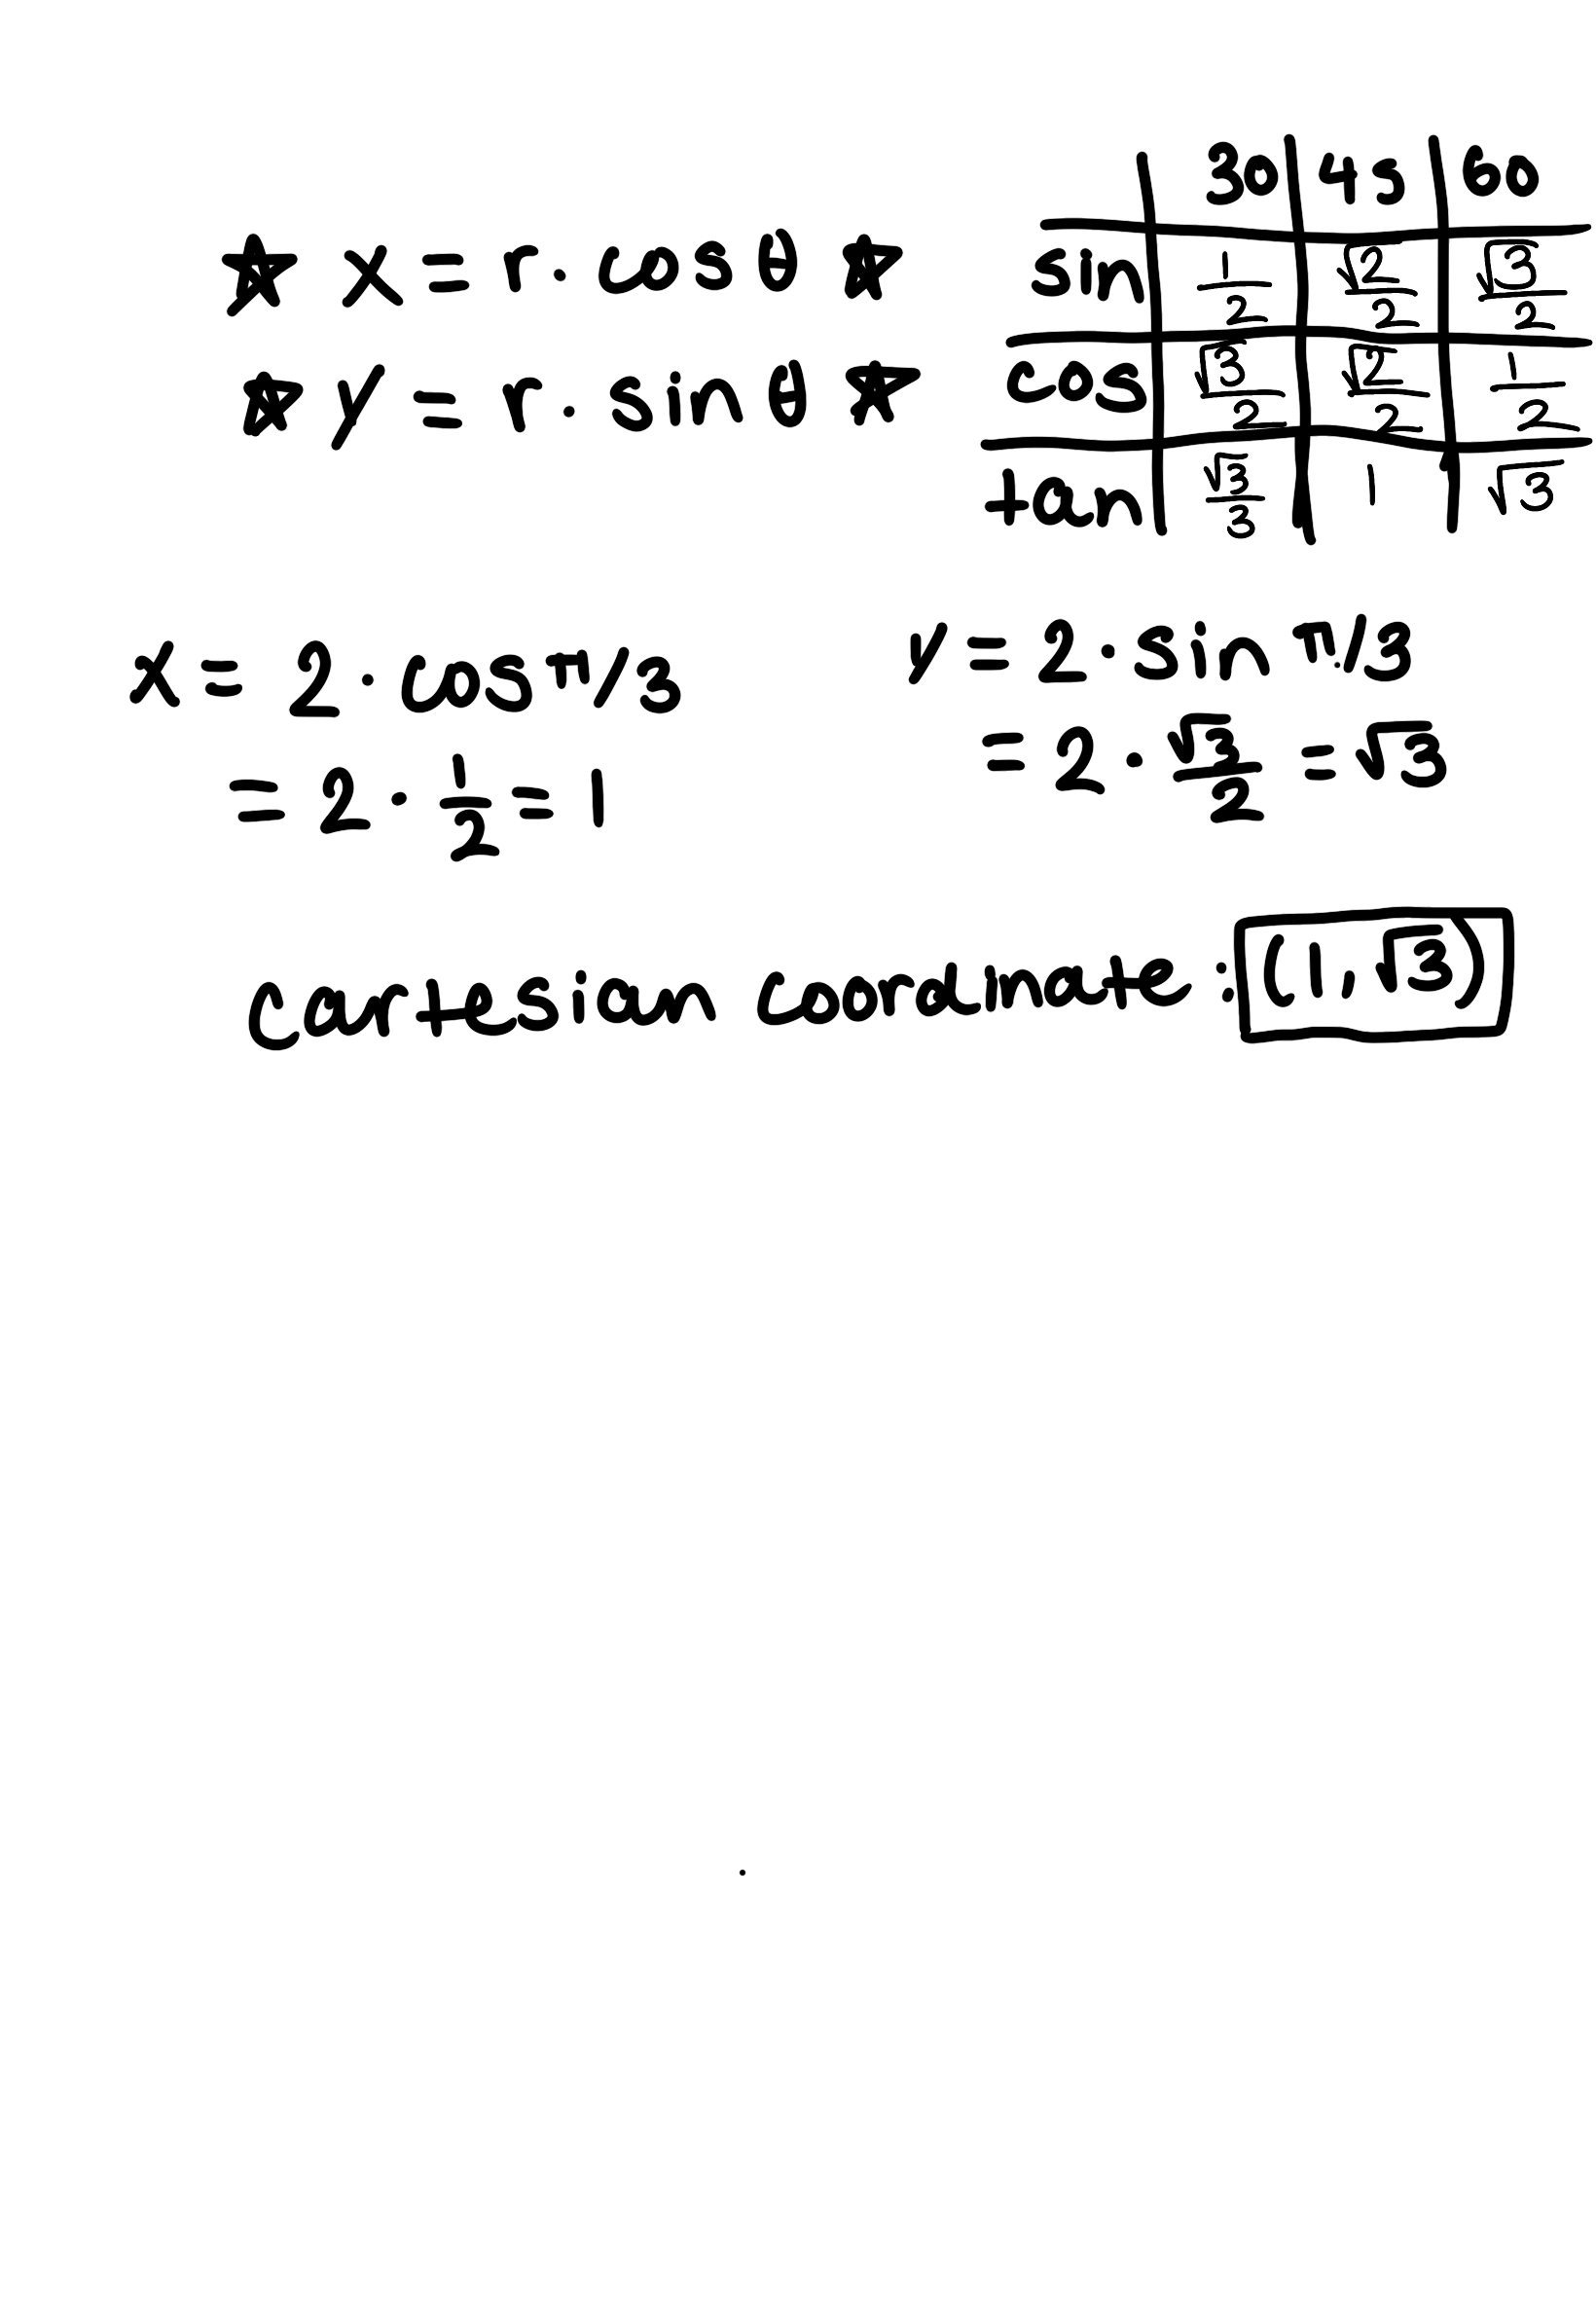 ★ x = r · cos θ ★
★ y = r · sin θ ★
30 45 60
sin 1/2 √2/2 √3/2
cos √3/2 √2/2 1/2
tan √3/3 1 √3
x = 2 · cos π/3
= 2 · 1/2 = 1
y = 2 · sin π/3
= 2 · √3/2 = √3
Cartesian coordinate : (1, √3)